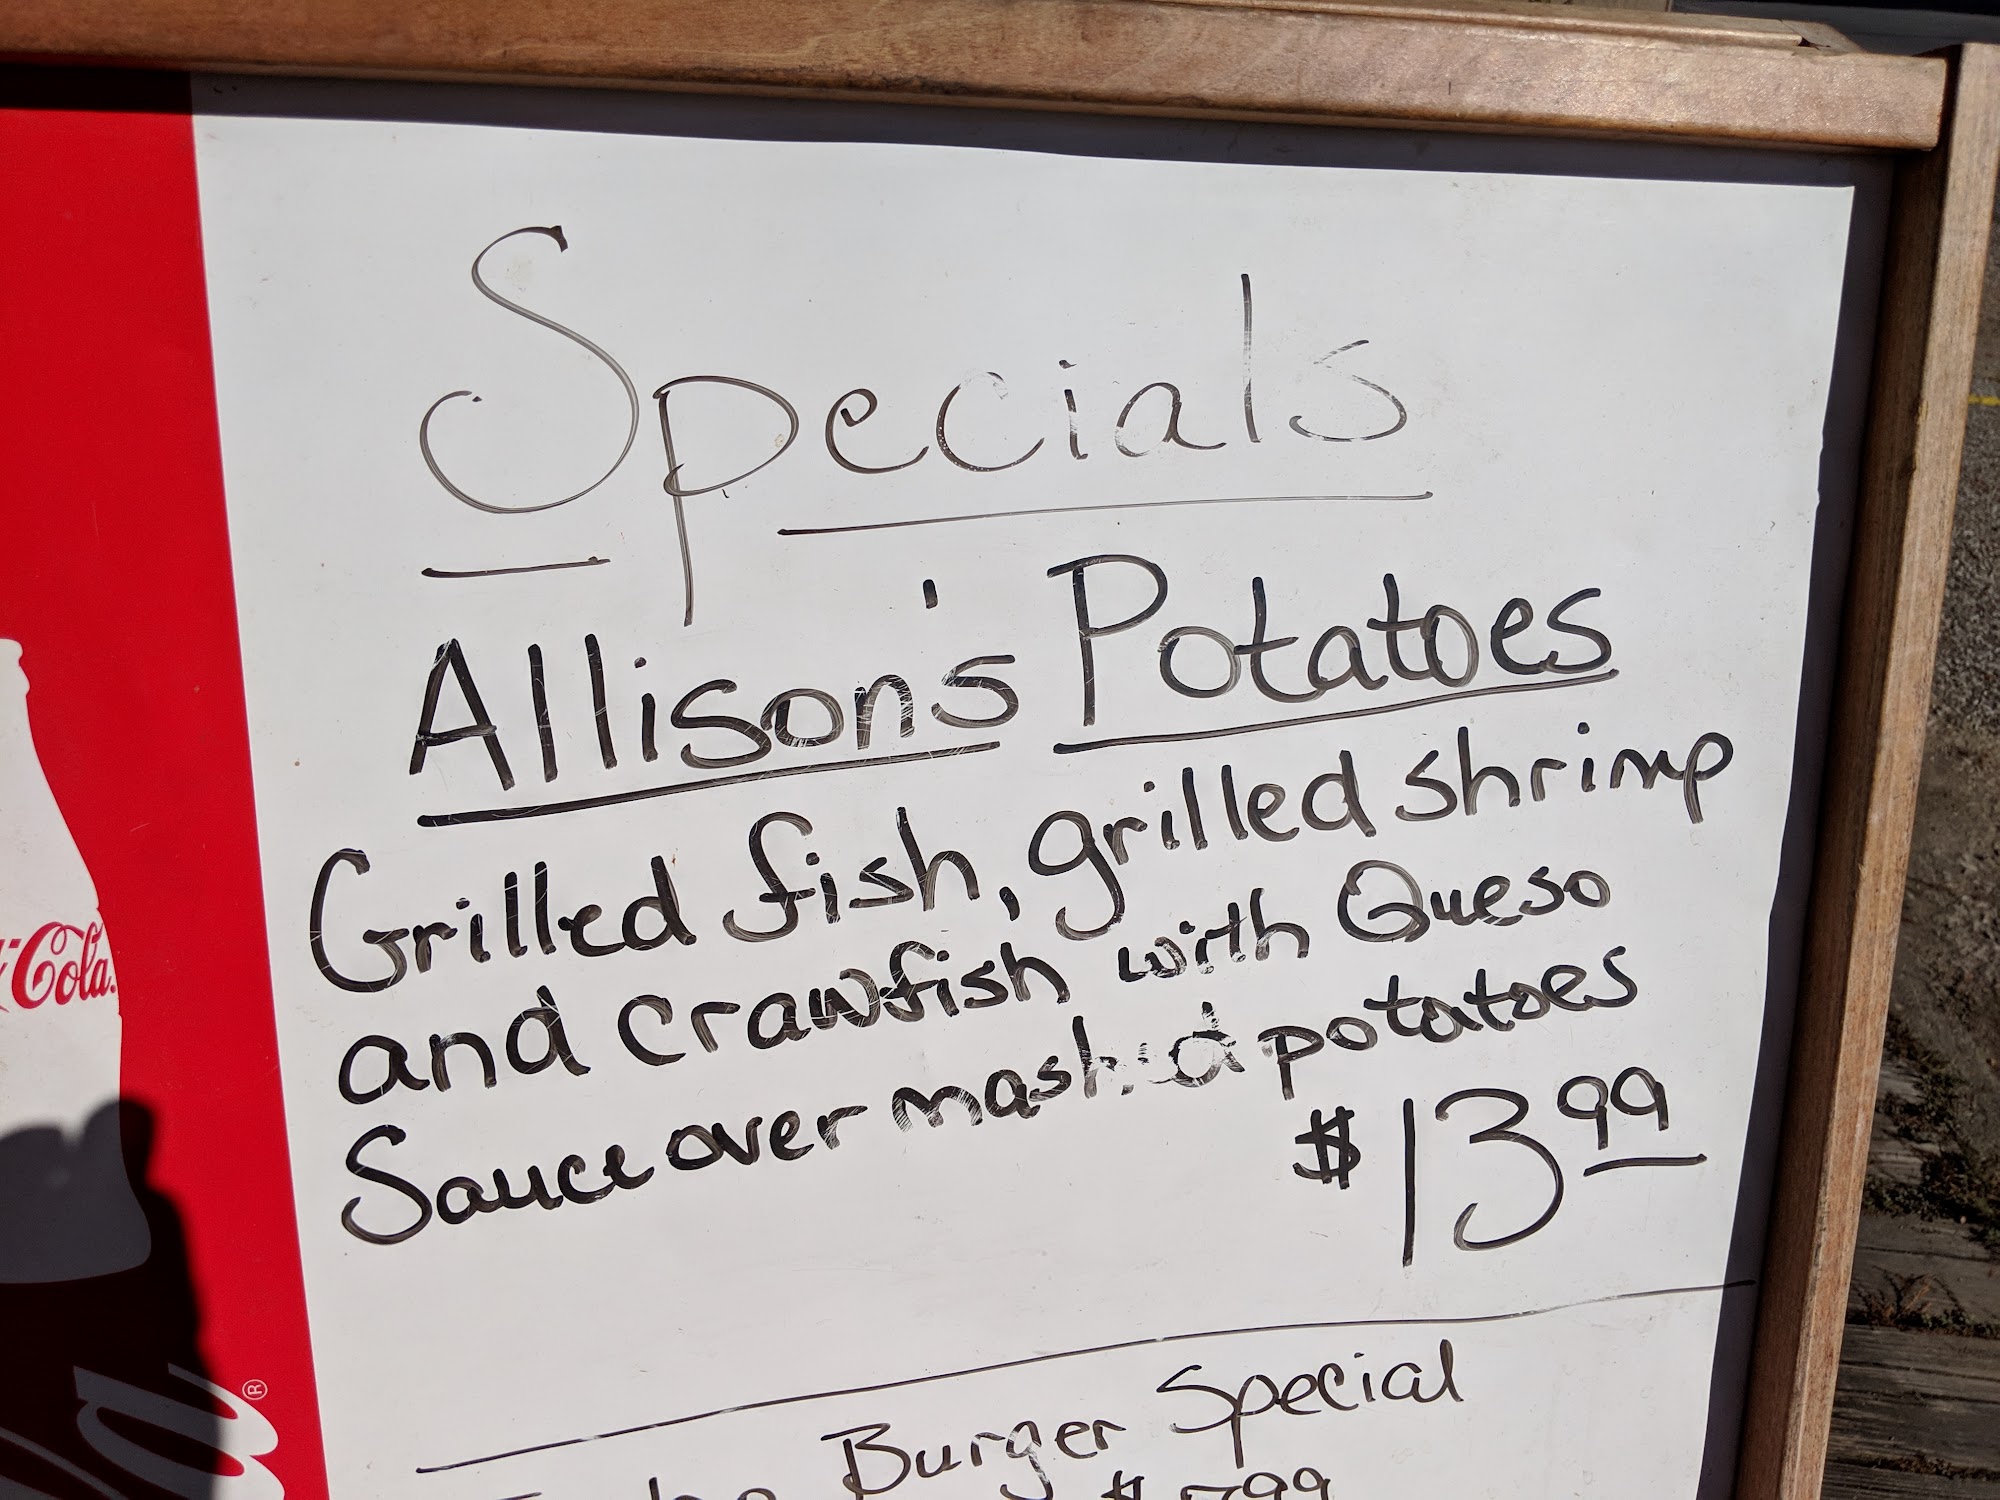 Specials
Allison's Potatoes
Grilled fish, grilled shrimp
and crawfish with Queso
Sauce over mashed potatoes
$13.99
Cola
®
Burger Special